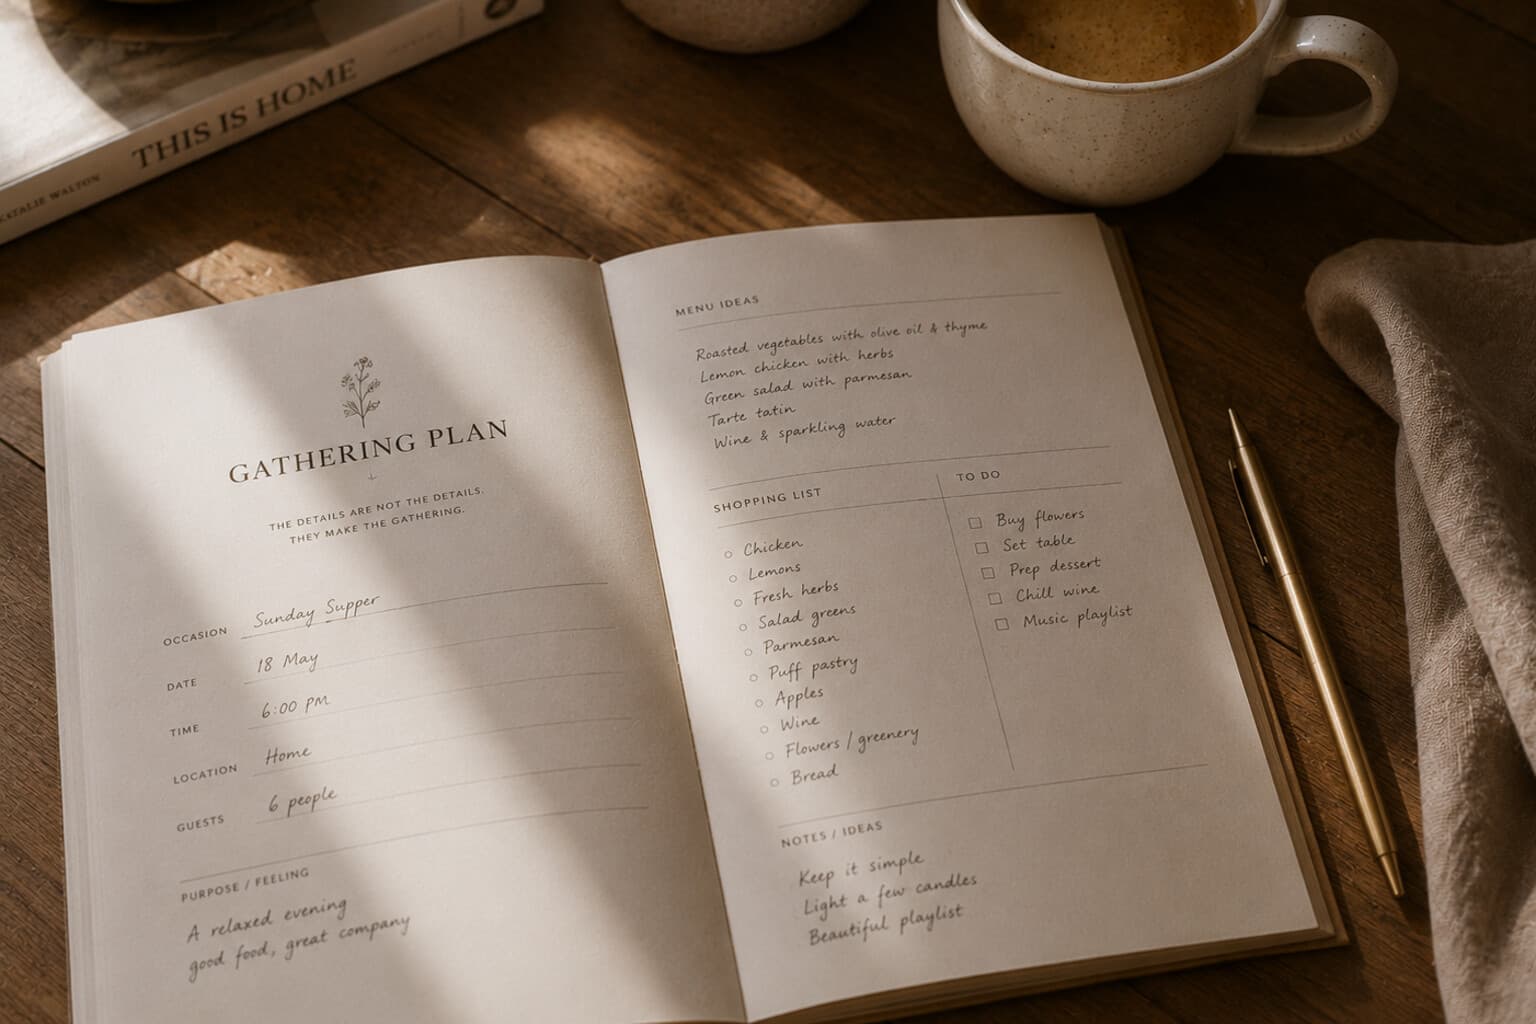 THIS IS HOME
NATALIE WALTON
GATHERING PLAN
THE DETAILS ARE NOT THE DETAILS.
THEY MAKE THE GATHERING.
OCCASION Sunday Supper
DATE 18 May
TIME 6:00 PM
LOCATION Home
GUESTS 6 people
PURPOSE / FEELING
A relaxed evening
good food, great company
MENU IDEAS
Roasted vegetables with olive oil & thyme
Lemon chicken with herbs
Green salad with parmesan
Tarte tatin
Wine & sparkling water
SHOPPING LIST
Chicken
Lemons
Fresh herbs
Salad greens
Parmesan
Puff pastry
Apples
Wine
Flowers / greenery
Bread
TO DO
Buy flowers
Set table
Prep dessert
Chill wine
Music playlist
NOTES / IDEAS
Keep it simple
Light a few candles
Beautiful playlist